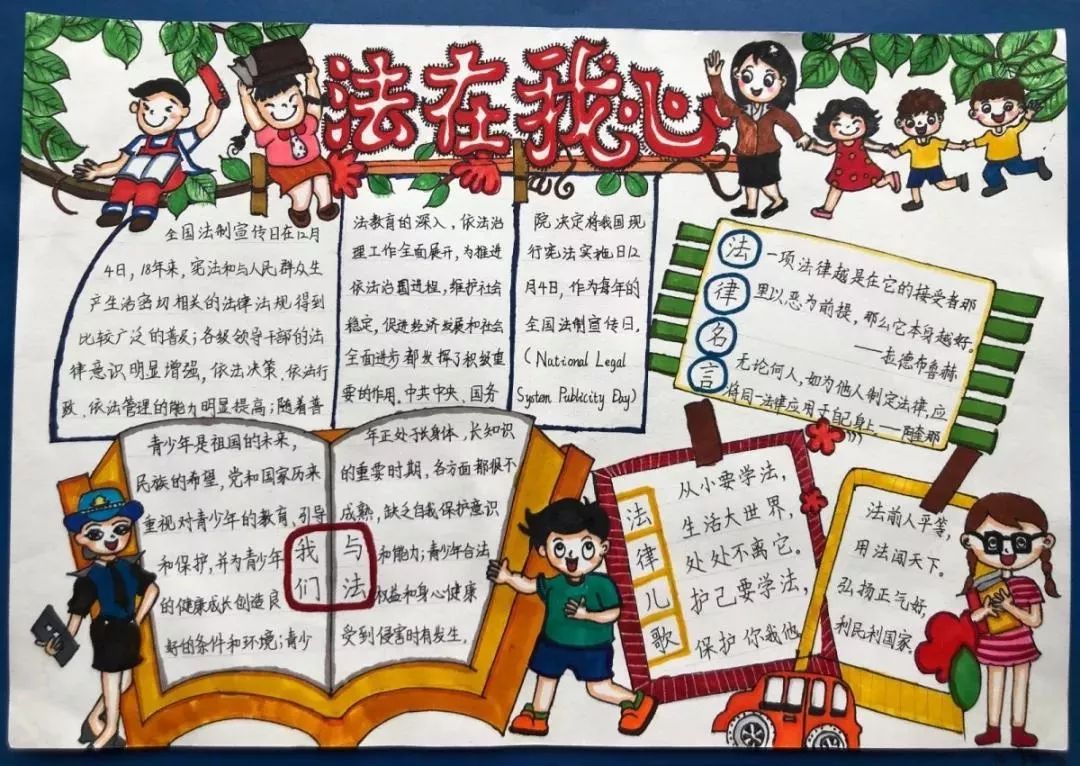 法在我心
全国法制宣传日在12月
4日，18年来，宪法和与人民群众生
产生活密切相关的法律法规得到
比较广泛的普及；各级领导干部的法
律意识明显增强，依法决策、依法行
政、依法管理的能力明显提高；随着普
法教育的深入，依法治
理工作全面展开，为推进
依法治国进程，维护社会
稳定，促进经济发展和社会
全面进步都发挥了积极重
要的作用。中共中央、国务
院决定将我国现
行宪法实施日12
月4日，作为每年的
全国法制宣传日。
(National Legal
System Publicity Day)
法律名言
一项法律越是在它的接受者那
里以恶为前提，那么它本身越好。
——拉德布鲁赫
无论何人，如为他人制定法律，应
将同一法律应用于自己身上。——阿奎那
我们与法
青少年是祖国的未来，
民族的希望，党和国家历来
重视对青少年的教育、引导
和保护，并为青少年
的健康成长创造良
好的条件和环境；青少
年正处于长身体，长知识
的重要时期，各方面都很不
成熟，缺乏自我保护意识
和能力；青少年合法
权益和身心健康
受到侵害时有发生。
法律儿歌
从小要学法，
生活大世界，
处处不离它。
护己要学法，
保护你我他
法前人平等，
用法闯天下。
弘扬正气好，
利民利国家。